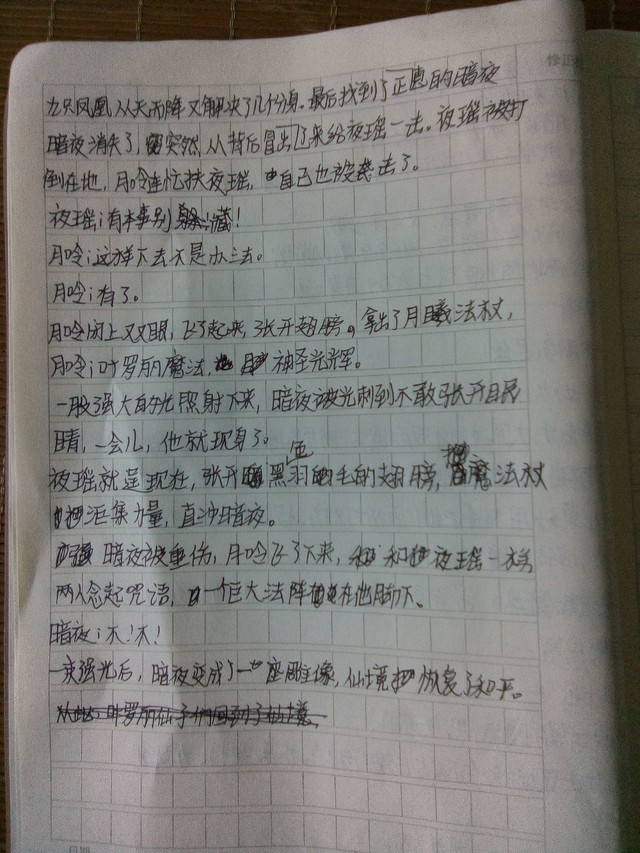 九只凤凰从天而降又解决了几个分身。最后找到了正愿的暗夜
暗夜消失了,突然从背后冒出了来给夜瑶一击。夜瑶被打
倒在地,月呤连忙扶夜瑶,自己也被袭击了。
夜瑶:有本事别躲藏!
月呤:这样下去不是办法。
月呤:有了。
月呤闭上又又眼,飞了起来,张开翅膀。拿出了月曦法杖,
月呤:叶罗丽魔法,神圣光辉。
一股强大的光照射下来,暗夜被光刺到不敢张开目民
睛,一会儿,他就现身了。
夜瑶就是现在,张开黑色羽毛的翅膀,魔法杖
汇集力量,直冲暗夜。
暗夜被重伤,月呤飞了下来,和夜瑶一样
两人念起咒语,一个巨大法阵在他脚下。
暗夜:不!不!
一束强光后,暗夜变成了一座雕像,仙境恢复了和平。
从此,叶罗丽仙子们回到了仙境。